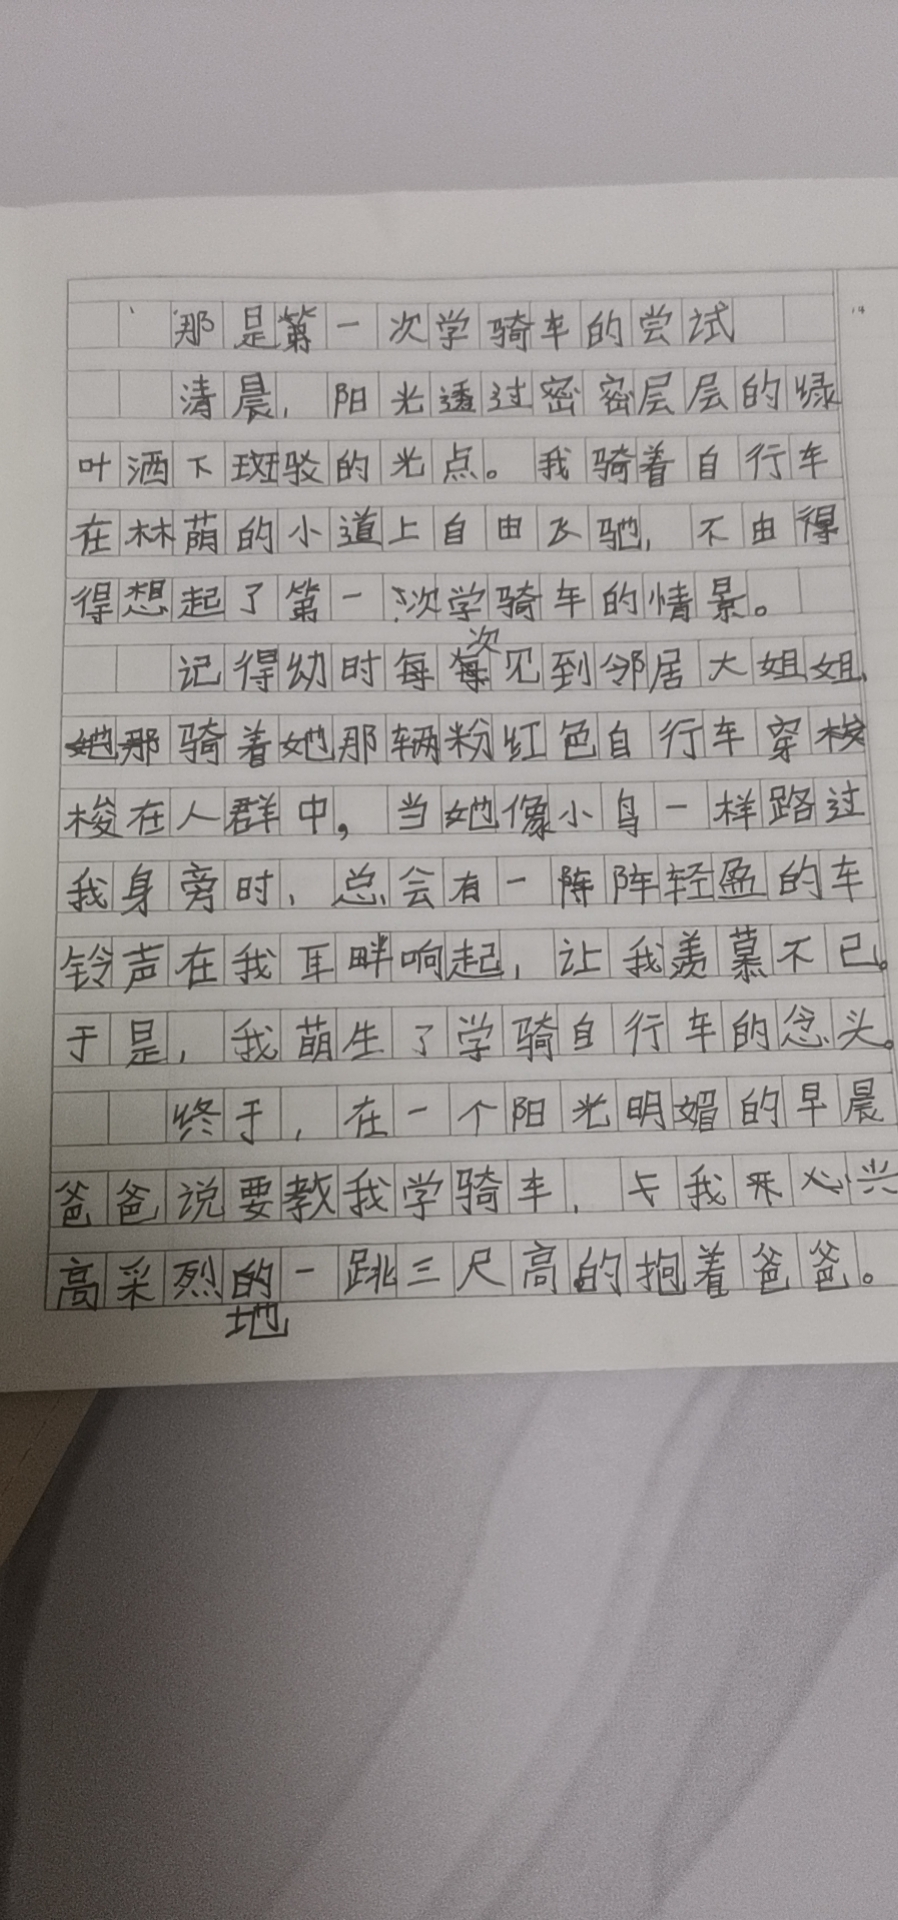 那是第一次学骑车的尝试
清晨，阳光透过密密层层的绿
叶洒下斑驳的光点。我骑着自行车
在林荫的小道上自由飞驰，不由得
得想起了第一次学骑车的情景。
记得幼时每次见到邻居大姐姐，
骑着她那辆粉红色自行车穿梭
梭在人群中，当她像小鸟一样路过
我身旁时，总会有一阵阵轻盈的车
铃声在我耳畔响起，让我羡慕不已。
于是，我萌生了学骑自行车的念头。
终于，在一个阳光明媚的早晨
爸爸说要教我学骑车，我兴
高采烈地一跳三尺高的抱着爸爸。